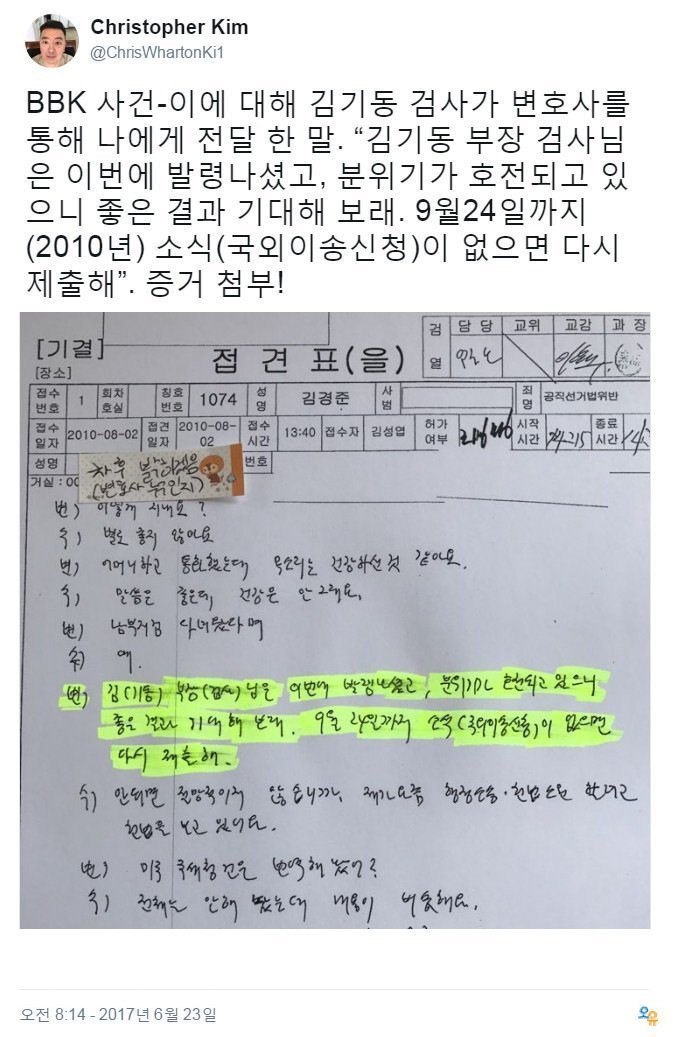 Christopher Kim
@ChrisWhartonKi1
BBK 사건-이에 대해 김기동 검사가 변호사를
통해 나에게 전달 한 말. “김기동 부장 검사님
은 이번에 발령나셨고, 분위기가 호전되고 있
으니 좋은 결과 기대해 보래. 9월24일까지
(2010년) 소식(국외이송신청)이 없으면 다시
제출해”. 증거 첨부!
[기결]
접 견 표(을)
검 열 담 당 교위 교감 과 장
[장소]
접수번호 1 회차호실 칭호번호 1074 성명 김경준 사범 죄명 공직선거법위반
접수일자 2010-08-02 접견일자 2010-08-02 접수시간 13:40 접수자 김성엽 허가여부 시작시간 종료시간
성명 번호
차후
(변호사 묶인지)
거실 : 00
변) 어떻게 지내요?
수) 별로 좋지 않아요
변) 어머니하고 통화했는데 목소리는 건강하신 것 같아요.
수) 말씀은 좋은데, 건강은 안 그래요.
변) 남부지검 다녀왔다며
수) 예.
변) 김(기동) 부장(검사)님은 이번에 발령나셨고, 분위기가 호전되고 있으니
좋은 결과 기대해 보래. 9월 24일까지 소식(국외이송신청)이 없으면
다시 제출해.
수) 안되면 절망적이지 않습니까, 제가 요즘 행정소송·헌법소원 하려고
헌법을 보고 있어요.
변) 미국 국세청건은 번역해 놨어?
수) 전체는 안해 봤는데 내용이 비슷해요.
오전 8:14 - 2017년 6월 23일
오유